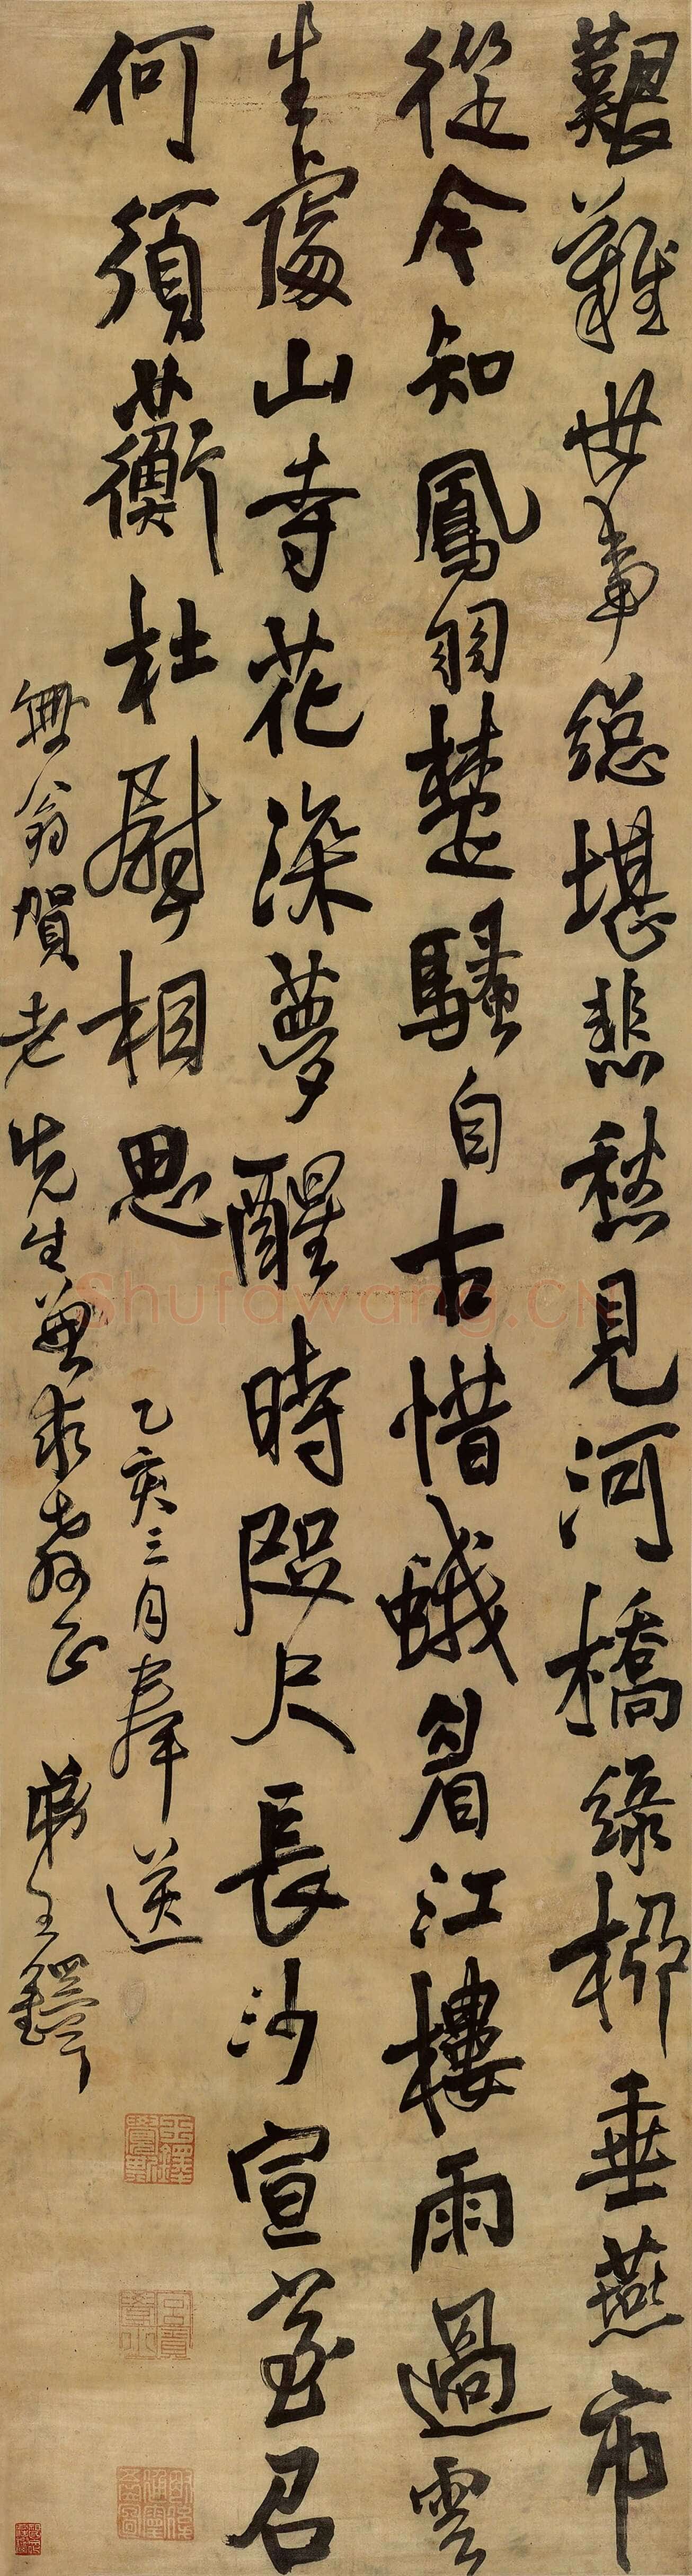 艱難世事總堪悲愁見河橋綠柳垂燕市
從今知鳳羽楚騷自古惜蛾眉江樓雨過雲
生處山寺花深夢醒時咫尺長沙宣室召
何須蘅杜慰相思
乙亥三月奉送
無翁賀老先生兼求教正
弟王鐸
Shufawang.CN